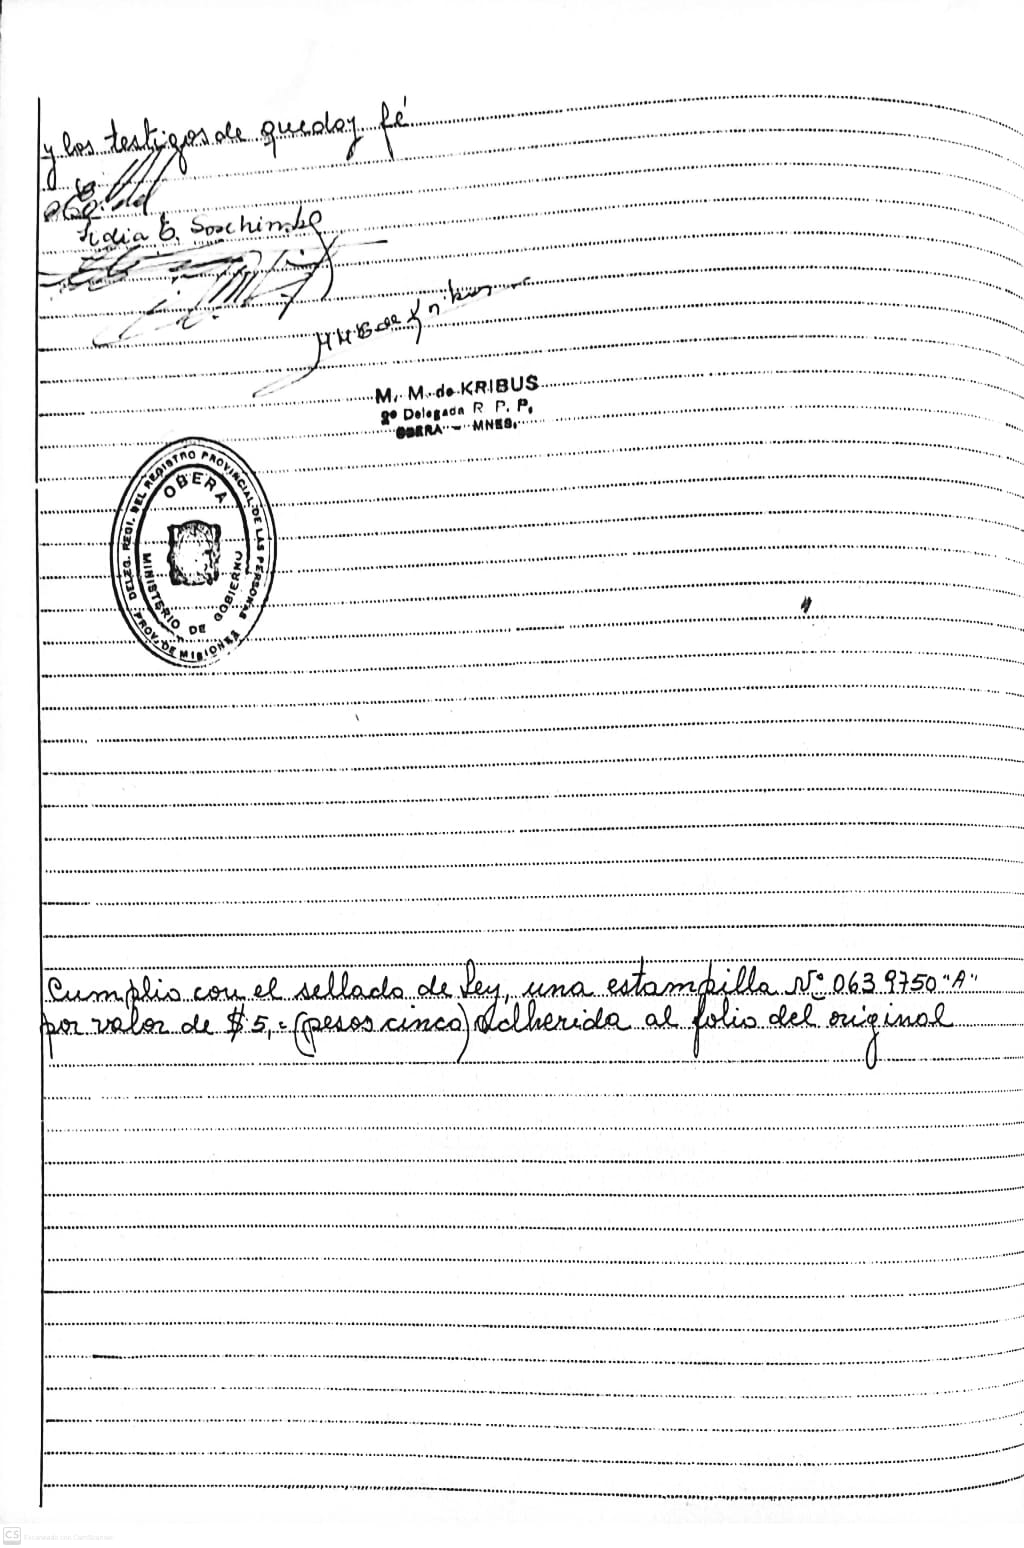 y los testigos de que doy fé
E. Soschinske
M. M. de KRIBUS
2º Delegada R. P. P.
OBERA - MNES.
DELEG. REGI. DEL REGISTRO PROVINCIAL DE LAS PERSONAS
OBERA
MINISTERIO DE GOBIERNO
PROV. DE MISIONES
Cumplio con el sellado de Ley, una estampilla Nº 0639750 "A"
por valor de $ 5,= (pesos cinco) Adherida al folio del original
CS Escaneado con CamScanner